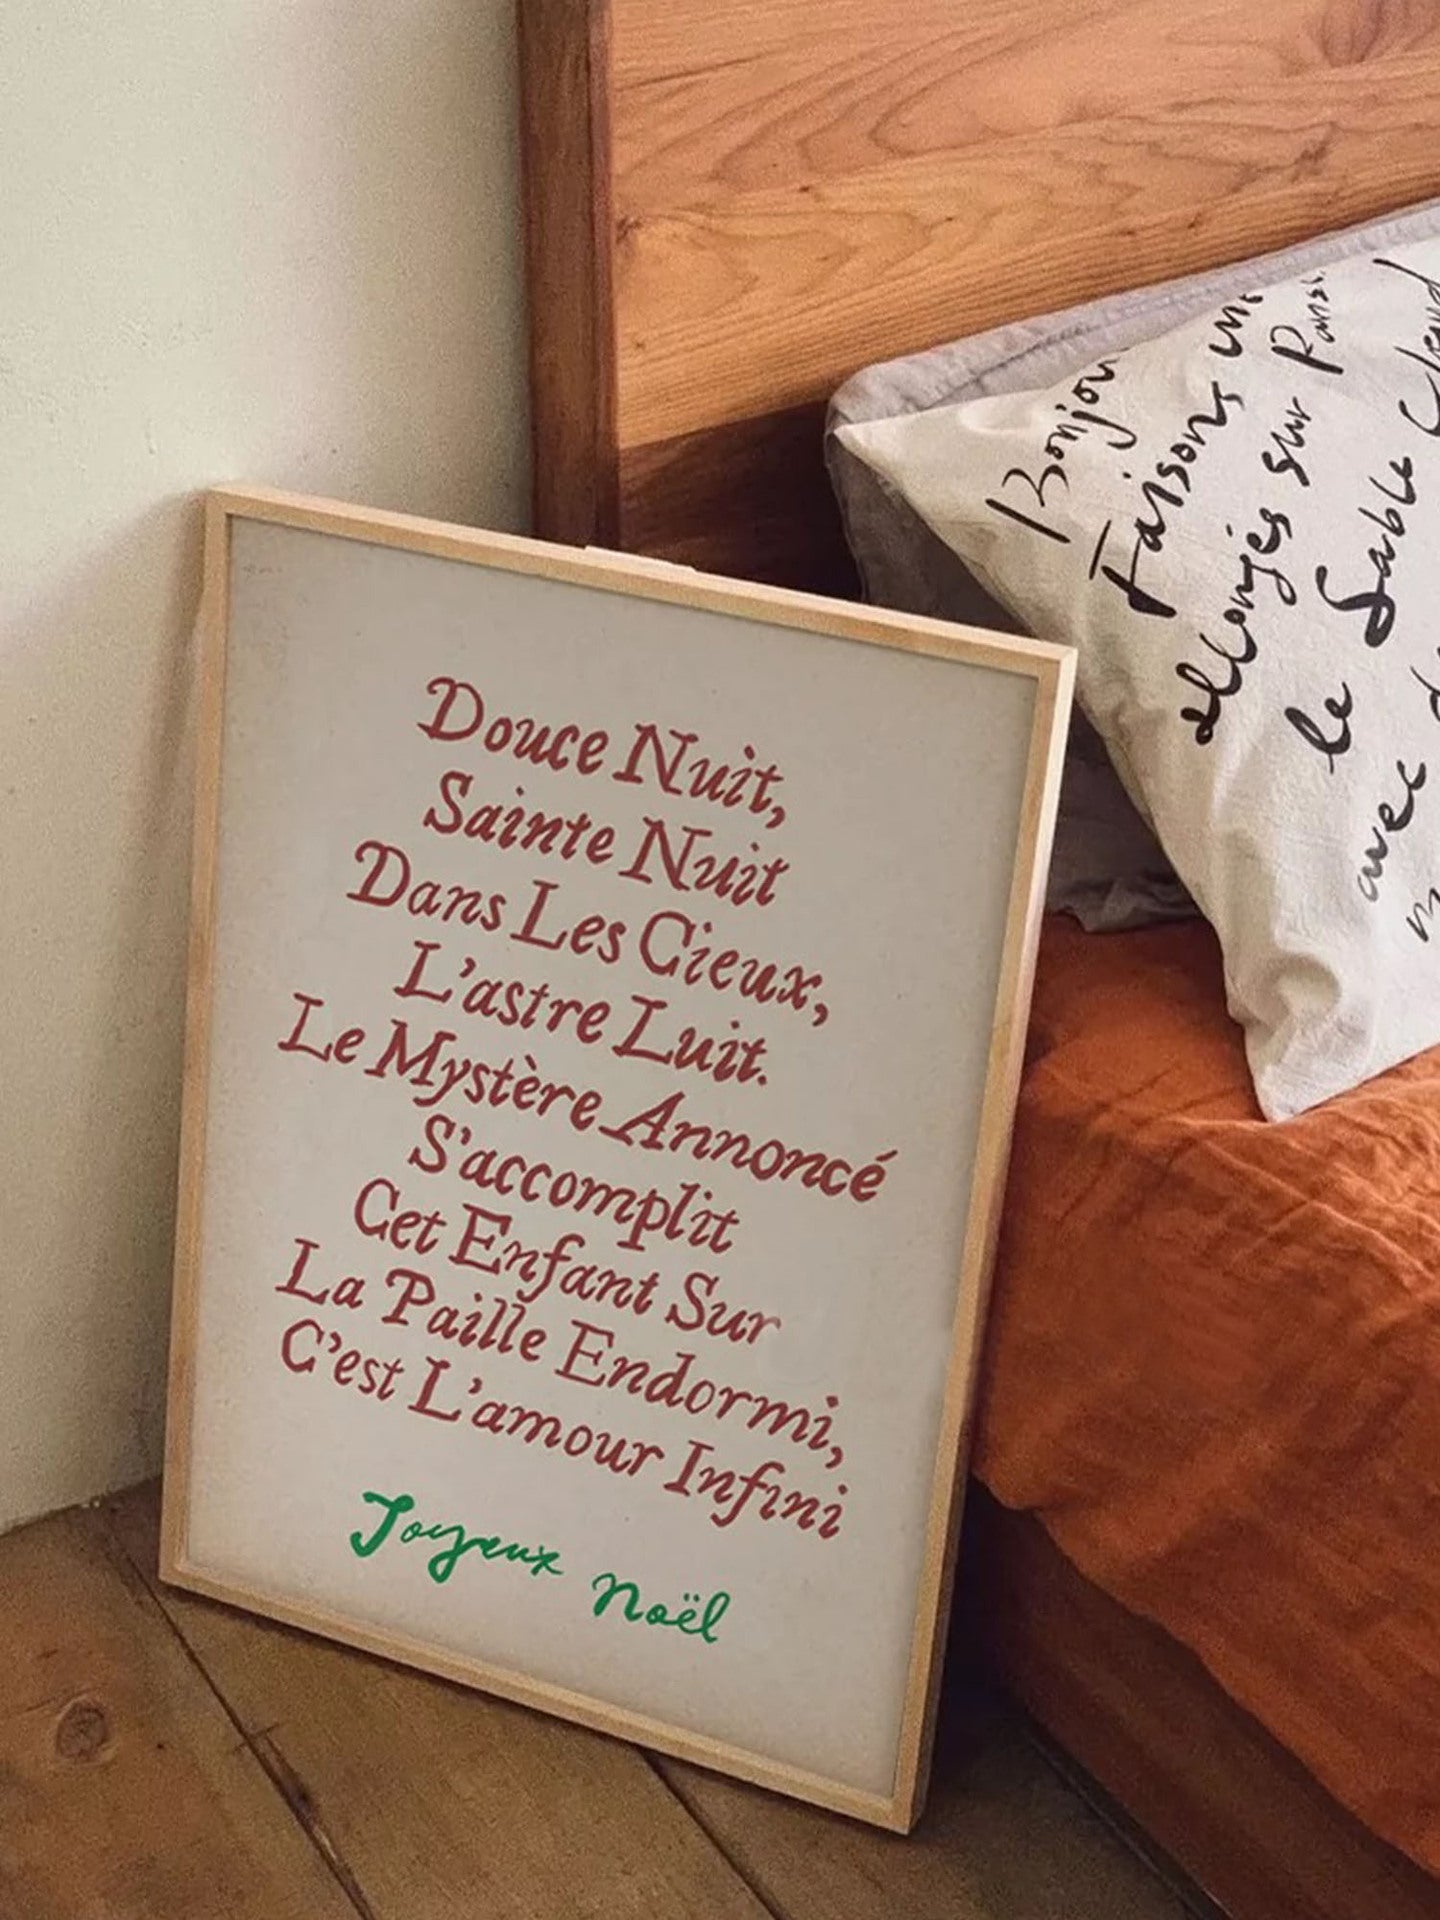 Douce Nuit,
Sainte Nuit
Dans Les Cieux,
L'astre Luit.
Le Mystère Annoncé
S'accomplit
Cet Enfant Sur
La Paille Endormi,
C'est L'amour Infini
Joyeux Noël
Bonjour
Faisons
allongés sur
le Sable
avec